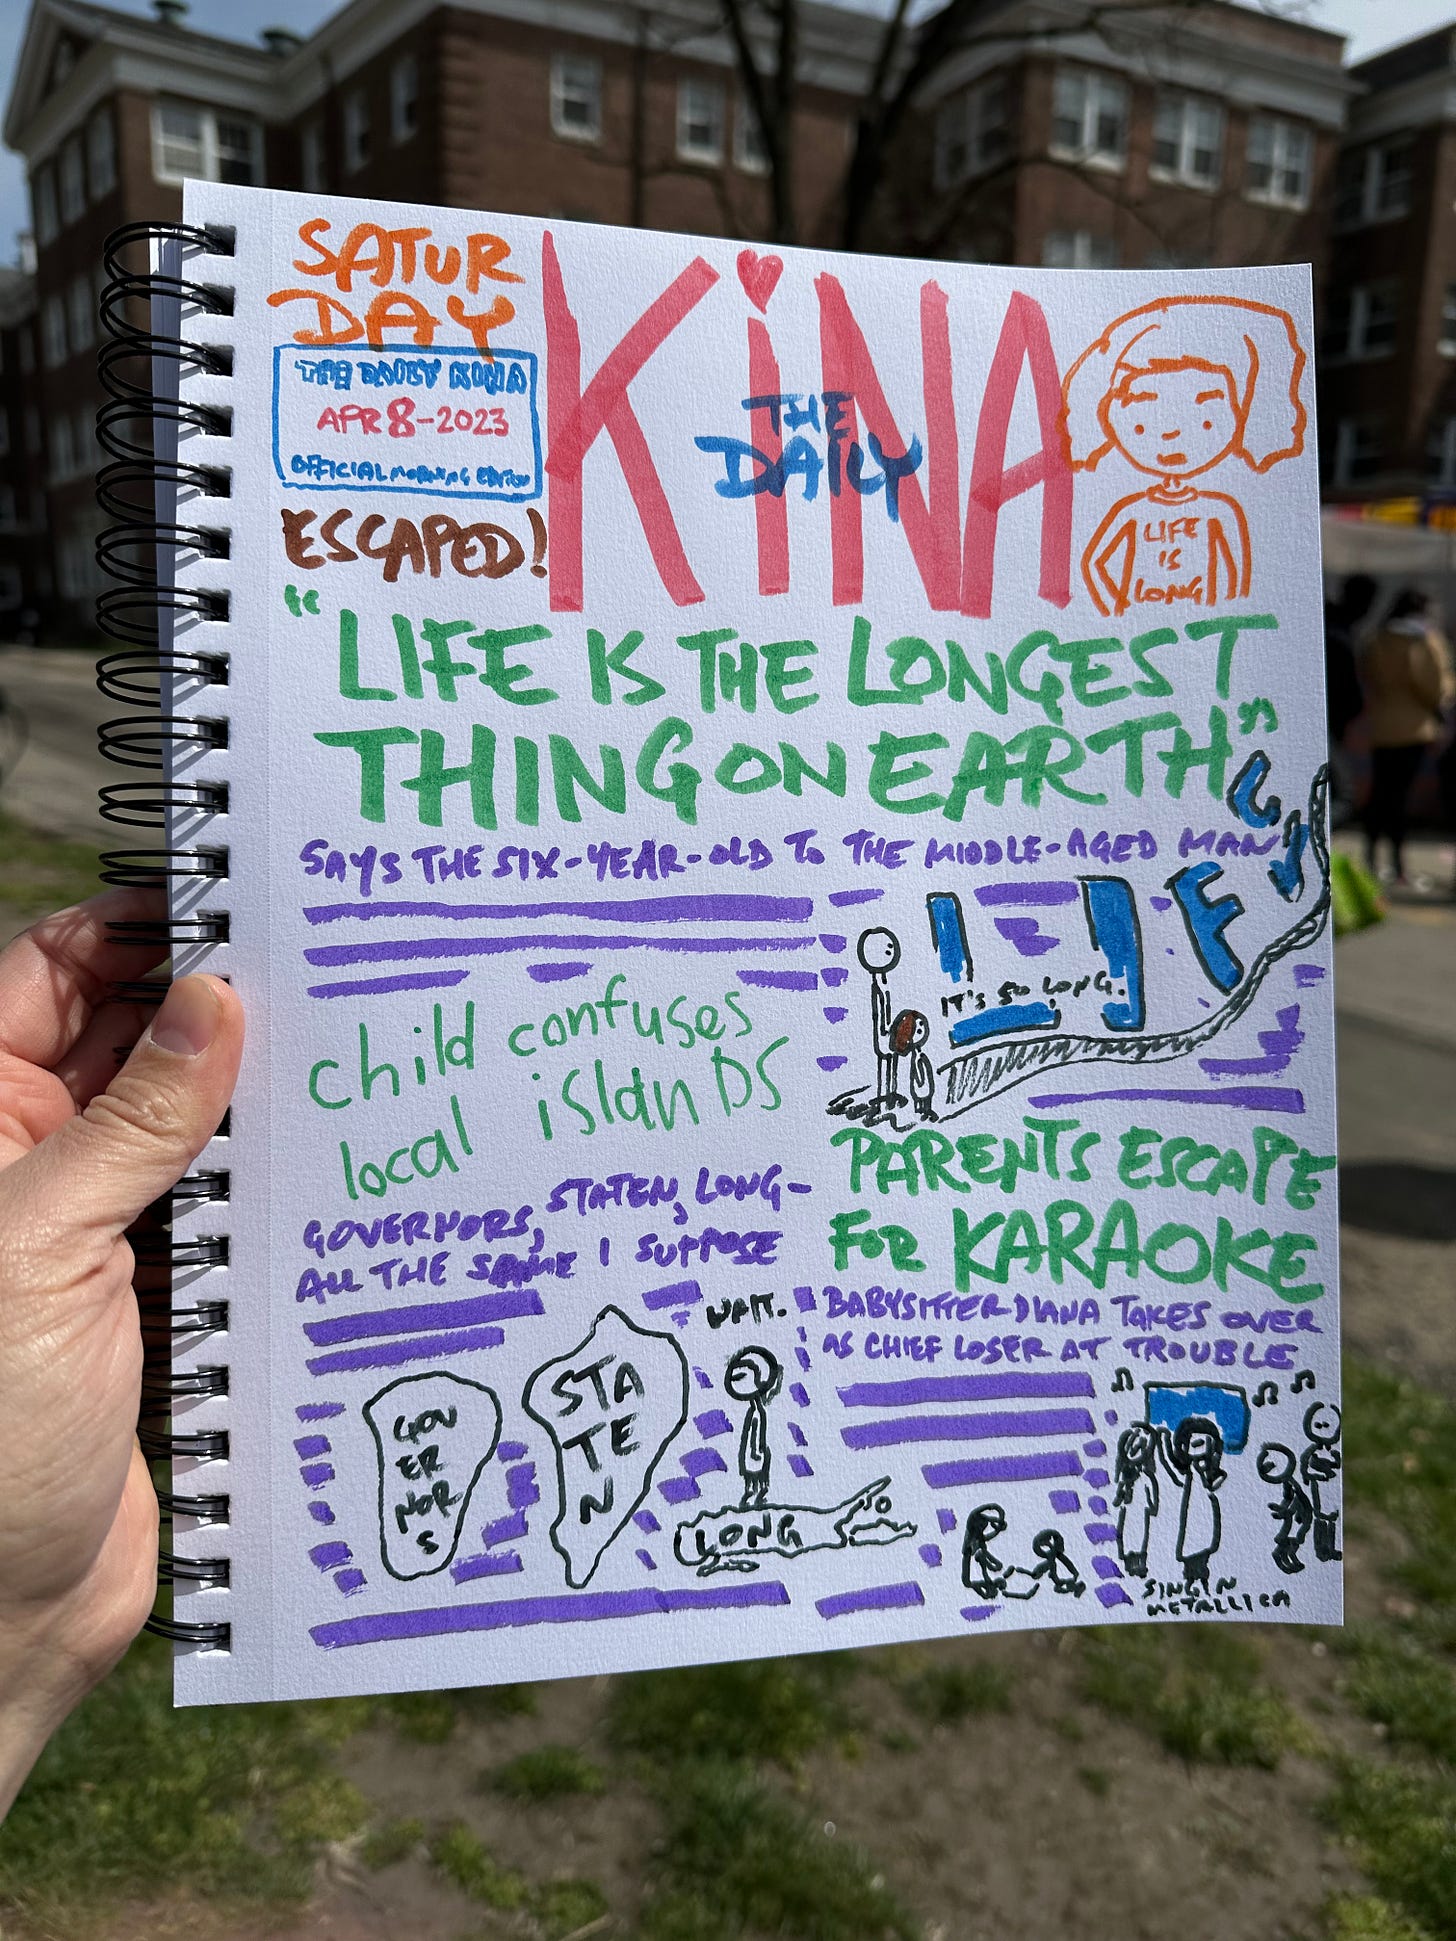 SATUR
DAY
THE DAILY KINA
APR 8-2023
OFFICIAL MORNING EDITION
ESCAPED!
KiNA
THE
DAILY
LIFE
IS
LONG
"LIFE IS THE LONGEST
THING ON EARTH"
SAYS THE SIX-YEAR-OLD TO THE MIDDLE-AGED MAN
LIFE
IT'S SO LONG.
child confuses
local islanDS
GOVERNORS, STATEN, LONG-
ALL THE SAME I SUPPOSE
WAIT.
GOV
ER
NOR
S
STA
TE
N
LONG
PARENTS ESCAPE
FOR KARAOKE
BABYSITTER DIANA TAKES OVER
AS CHIEF LOSER AT TROUBLE
SINGIN
METALLICA